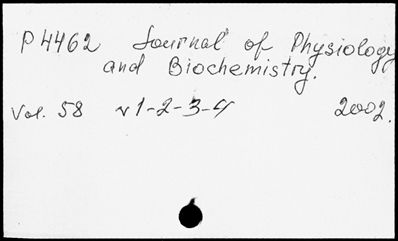 P4462 Journal of Physiology
and Biochemistry.
Vol. 58 v 1-2-3-4 2002.